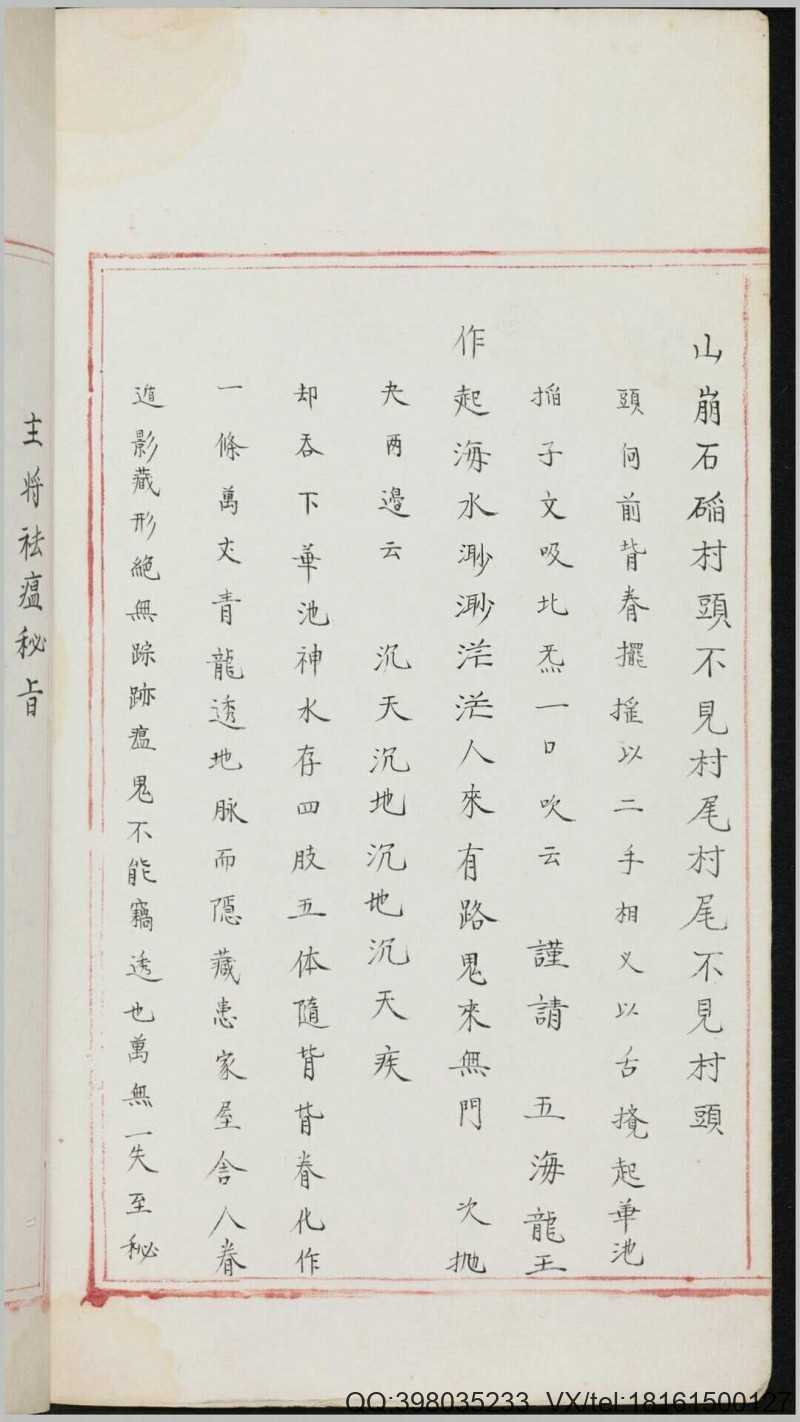 山崩石𥔲村頭不見村尾村尾不見村頭
頭向前背脊擺搖以二手相叉以舌撓起華池
搯子文吸北炁一口吹云 謹請 五海龍王
作起海水渺渺茫茫人來有路鬼來無門 次拋
夬兩邊云 沉天沉地沉地沉天疾
却吞下華池神水存四肢五体隨背背脊化作
一條萬丈青龍透地脉而隱藏患家屋舍人眷
遁影藏形絕無踪跡瘟鬼不能竊透也萬無一失至秘
主將祛瘟秘旨
QQ:398035233 VX/tel:18161500127